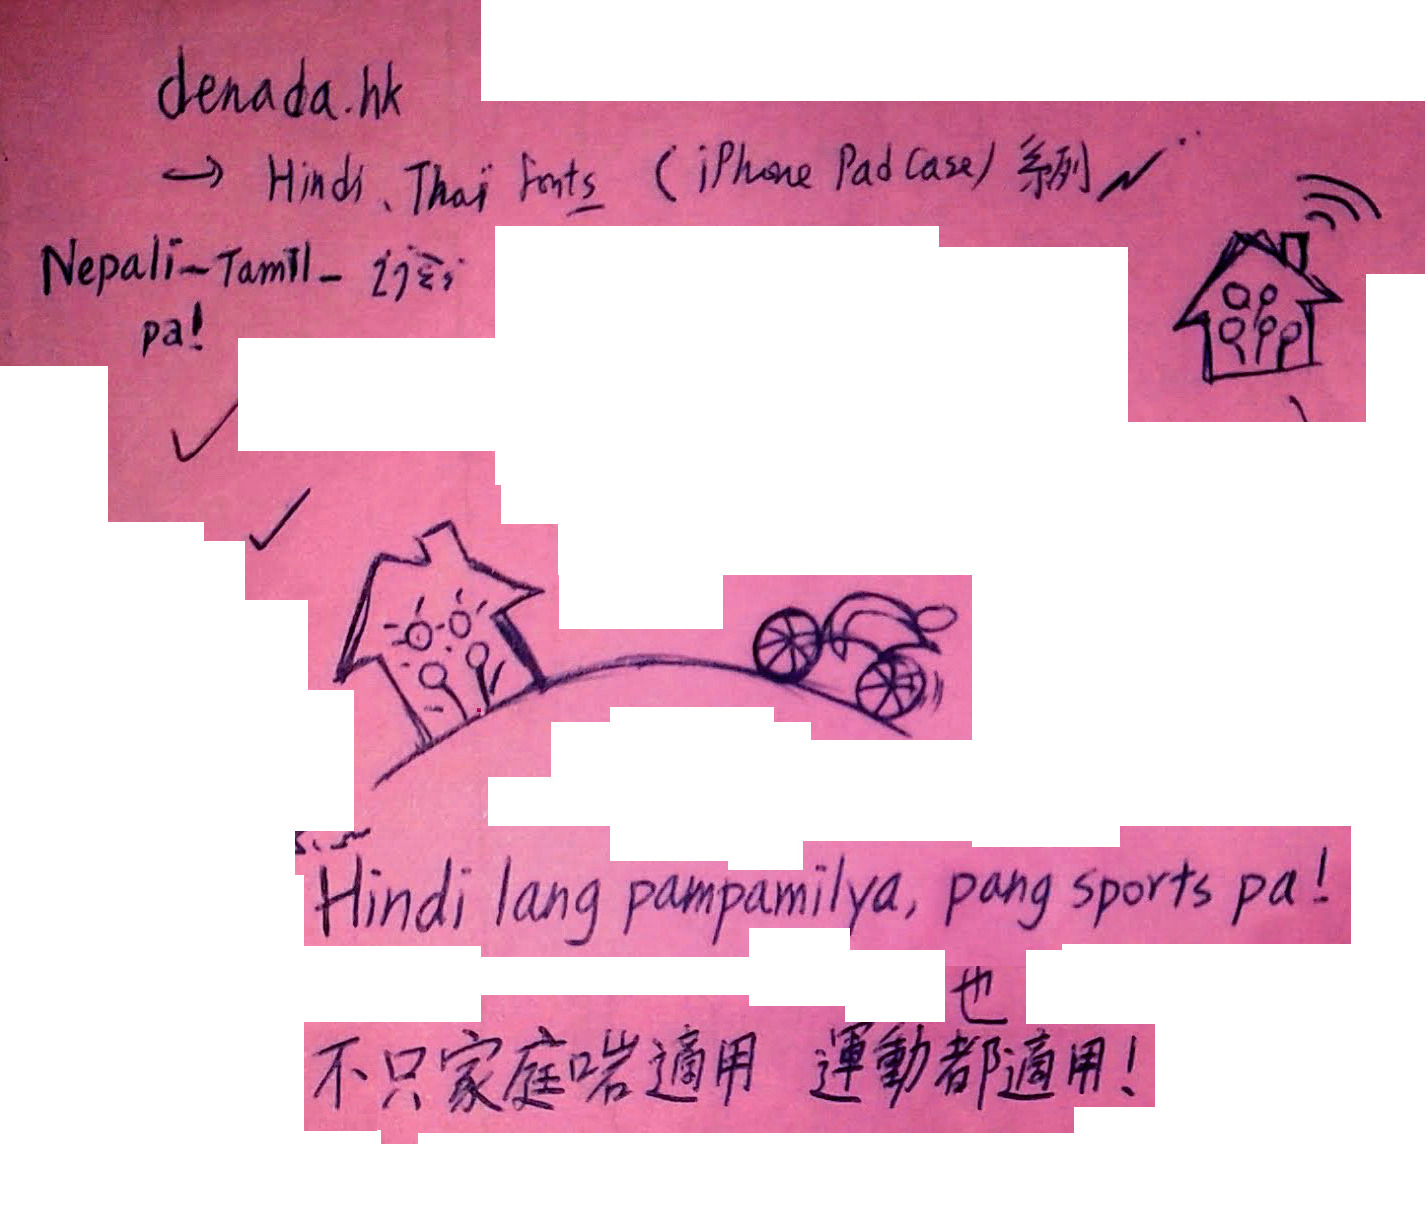 denada.hk
→ Hindi、Thai fonts (iPhone Pad Case) 系列
Nepali-Tamil-
pa!
Hindi lang pampamilya, pang sports pa!
也
不只家庭啱適用 運動都適用!